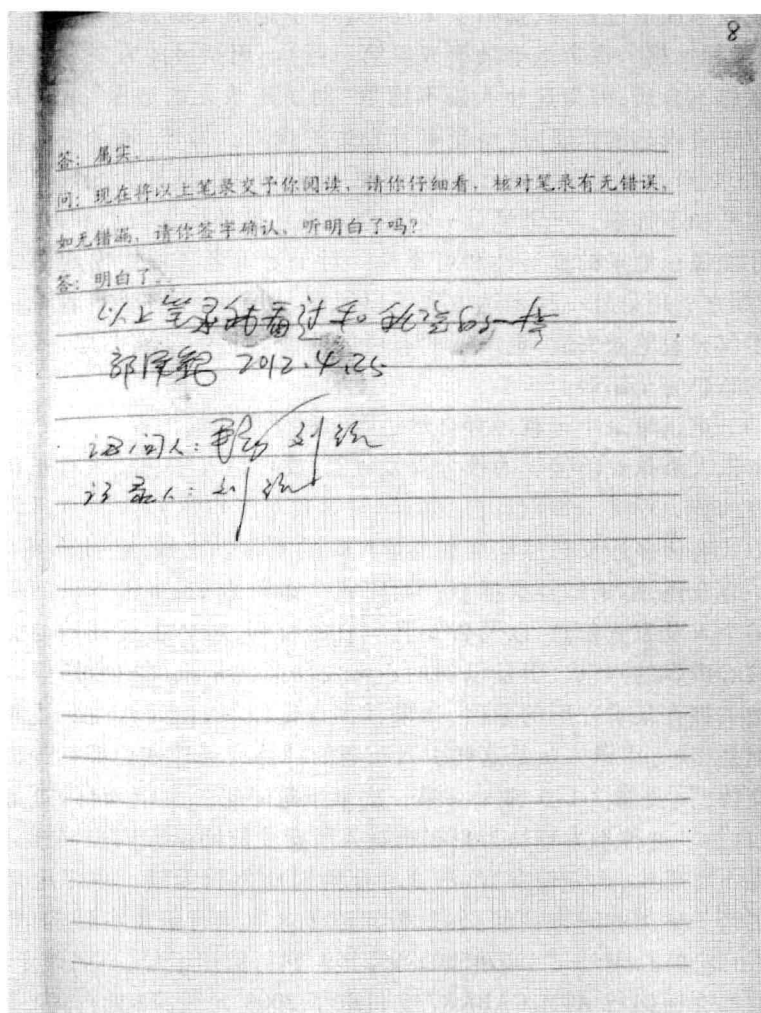 8
答：属实。
问：现在将以上笔录交予你阅读，请你仔细看，核对笔录有无错误，
如无错漏，请你签字确认，听明白了吗？
答：明白了。
以上笔录我看过和我说的一样
郭泽 2012.4.25
询问人： 刘
记录人：刘